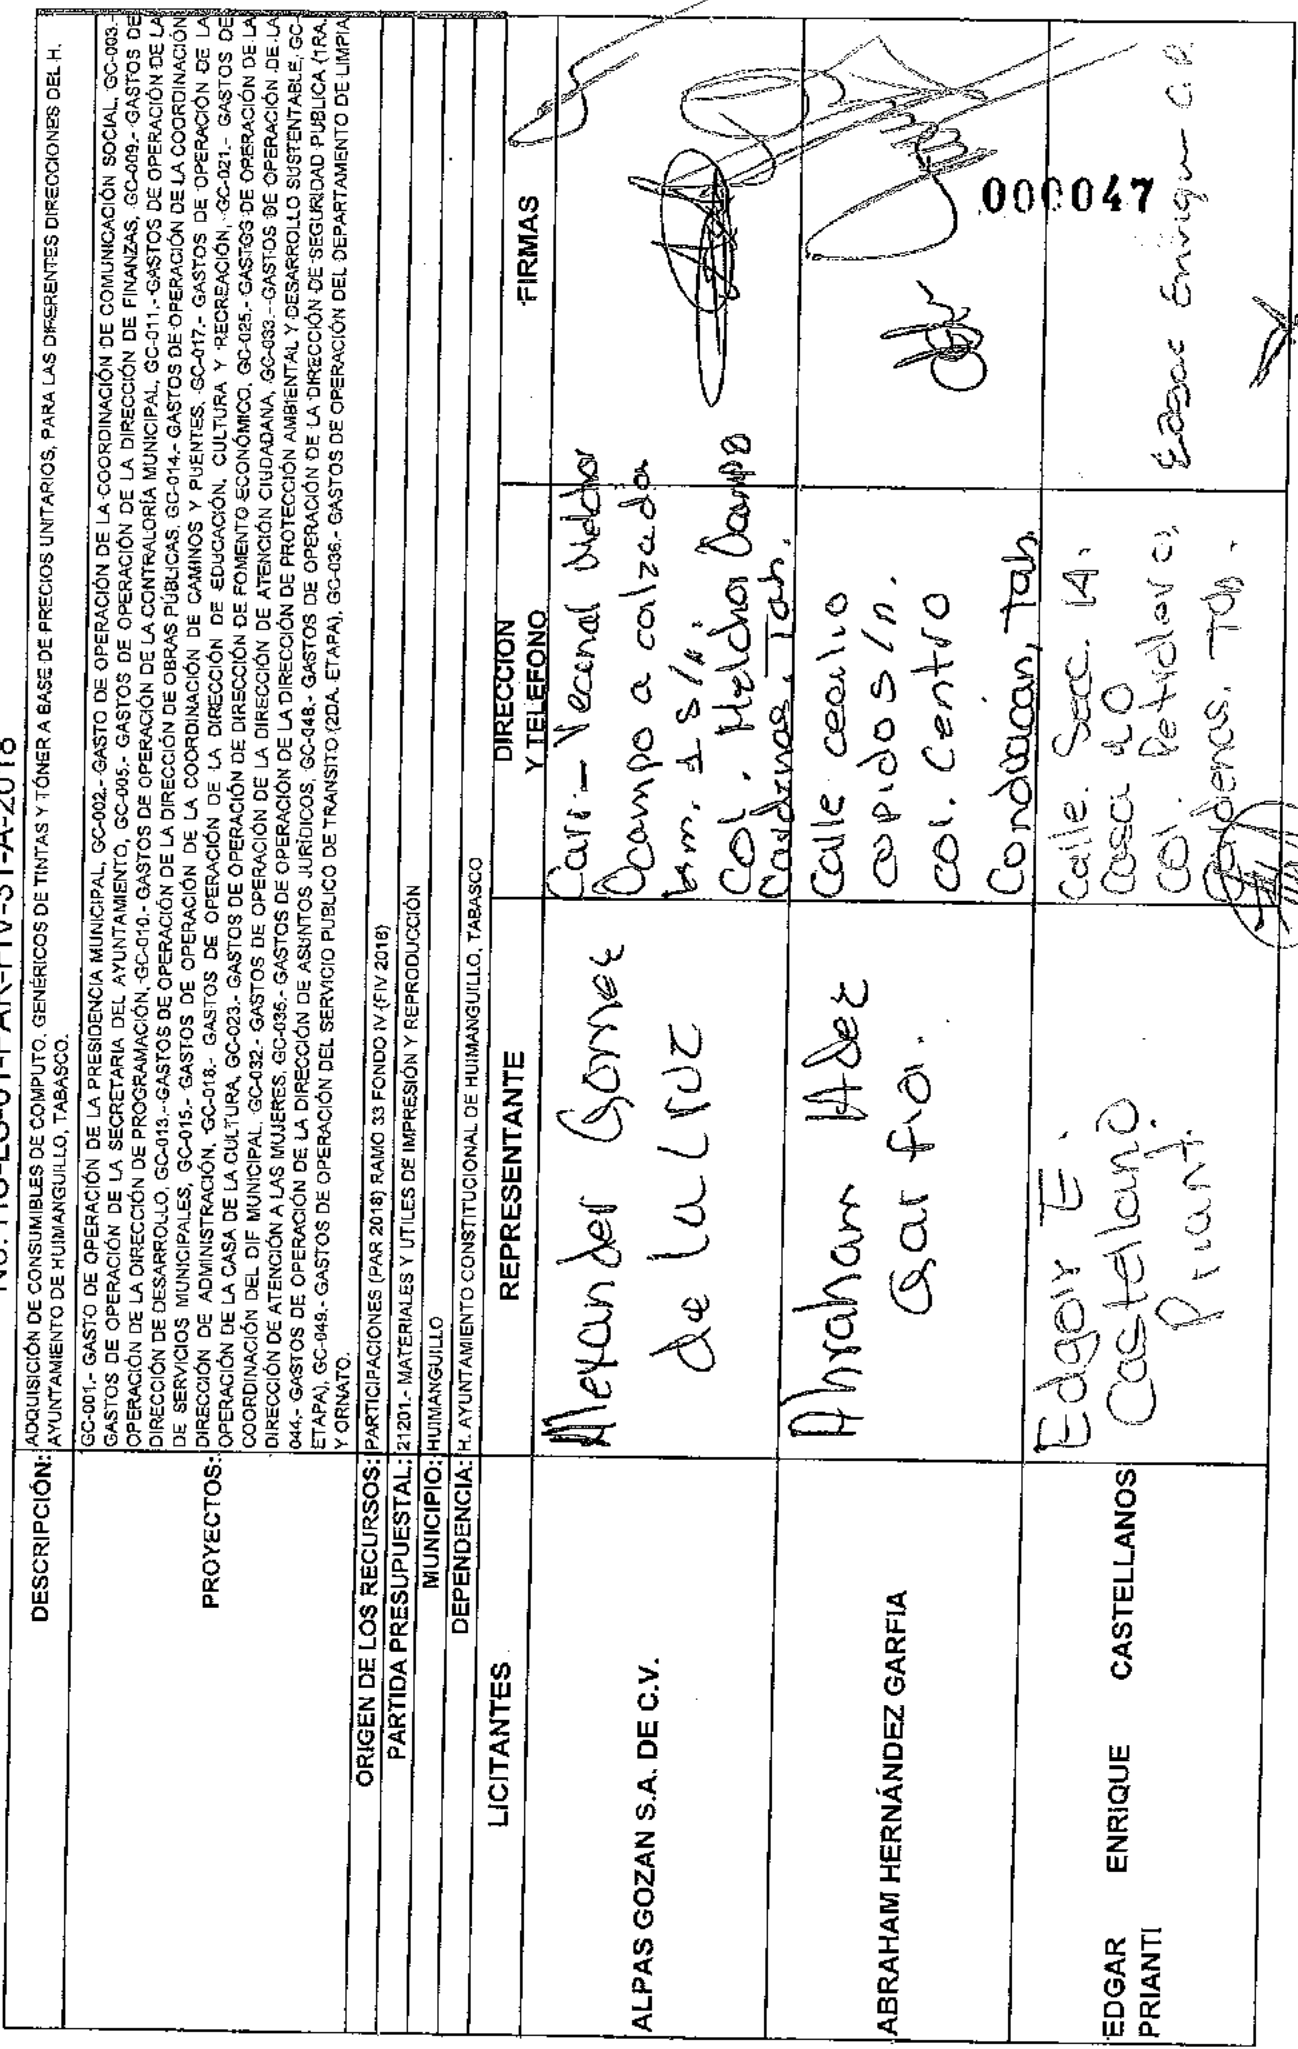 DESCRIPCIÓN: ADQUISICIÓN DE CONSUMIBLES DE COMPUTO, GENÉRICOS DE TINTAS Y TÓNER A BASE DE PRECIOS UNITARIOS, PARA LAS DIFERENTES DIRECCIONES DEL H.
AYUNTAMIENTO DE HUIMANGUILLO, TABASCO.
PROYECTOS: GC-001.- GASTO DE OPERACIÓN DE LA PRESIDENCIA MUNICIPAL, GC-002.- GASTO DE OPERACIÓN DE LA COORDINACIÓN DE COMUNICACIÓN SOCIAL, GC-003.-
GASTOS DE OPERACIÓN DE LA SECRETARIA DEL AYUNTAMIENTO, GC-005.- GASTOS DE OPERACIÓN DE LA DIRECCIÓN DE FINANZAS, GC-009.- GASTOS DE
OPERACIÓN DE LA DIRECCIÓN DE PROGRAMACIÓN, GC-010.- GASTOS DE OPERACIÓN DE LA CONTRALORÍA MUNICIPAL, GC-011.- GASTOS DE OPERACIÓN DE LA
DIRECCIÓN DE DESARROLLO, GC-013.- GASTOS DE OPERACIÓN DE LA DIRECCIÓN DE OBRAS PÚBLICAS, GC-014.- GASTOS DE OPERACIÓN DE LA COORDINACIÓN
DE SERVICIOS MUNICIPALES, GC-015.- GASTOS DE OPERACIÓN DE LA COORDINACIÓN DE CAMINOS Y PUENTES, GC-017.- GASTOS DE OPERACIÓN DE LA
DIRECCIÓN DE ADMINISTRACIÓN, GC-018.- GASTOS DE OPERACIÓN DE LA DIRECCIÓN DE EDUCACIÓN, CULTURA Y RECREACIÓN, GC-021.- GASTOS DE
OPERACIÓN DE LA CASA DE LA CULTURA, GC-023.- GASTOS DE OPERACIÓN DE DIRECCIÓN DE FOMENTO ECONÓMICO, GC-025.- GASTOS DE OPERACIÓN DE LA
COORDINACIÓN DEL DIF MUNICIPAL, GC-032.- GASTOS DE OPERACIÓN DE LA DIRECCIÓN DE ATENCIÓN CIUDADANA, GC-033.- GASTOS DE OPERACIÓN DE LA
DIRECCIÓN DE ATENCIÓN A LAS MUJERES, GC-035.- GASTOS DE OPERACIÓN DE LA DIRECCIÓN DE PROTECCIÓN AMBIENTAL Y DESARROLLO SUSTENTABLE, GC-
044.- GASTOS DE OPERACIÓN DE LA DIRECCIÓN DE ASUNTOS JURÍDICOS, GC-048.- GASTOS DE OPERACIÓN DE LA DIRECCIÓN DE SEGURIDAD PUBLICA (1RA.
ETAPA), GC-049.- GASTOS DE OPERACIÓN DEL SERVICIO PUBLICO DE TRANSITO (2DA. ETAPA), GC-036.- GASTOS DE OPERACIÓN DEL DEPARTAMENTO DE LIMPIA
Y ORNATO.
ORIGEN DE LOS RECURSOS: PARTICIPACIONES (PAR 2018) RAMO 33 FONDO IV (FIV 2018)
PARTIDA PRESUPUESTAL: 21201.- MATERIALES Y UTILES DE IMPRESIÓN Y REPRODUCCIÓN
MUNICIPIO: HUIMANGUILLO
DEPENDENCIA: H. AYUNTAMIENTO CONSTITUCIONAL DE HUIMANGUILLO, TABASCO
LICITANTES REPRESENTANTE DIRECCION Y TELEFONO FIRMAS
ALPAS GOZAN S.A. DE C.V.
Alexander Gomez
de la Cruz
Carr.- Vecinal Melchor
Ocampo a calzada
km. 1 S/N.
Col. Melchor Ocampo
Cardenas, Tab.
ABRAHAM HERNÁNDEZ GARFIA
Abraham Hdez
Garfia.
Calle cecilio
cupido s/n.
col. Centro
Cunduacan, Tab.
000047
EDGAR ENRIQUE CASTELLANOS
PRIANTI
Edgar E.
Castellano
Prianti.
Calle. Secc. 14.
Casa 40
Col. Petrolera
Cardenas, Tab.
Enrique C.P.